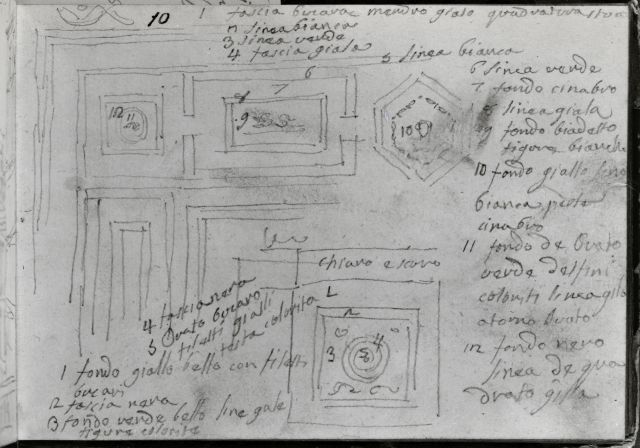 10
1 fascia bucara meandro gialo quadratura stua
2 linea bianca
3 linea verde
4 fascia giala
5 linea bianca
6 linea verde
7 fondo cinabro
8 linea giala
9 fondo biadetto
figore bianche
10 fondo giallo
bianca perle
cinabro
11 fondo de Ovato
verde delfini
coloriti linea giala
atorno Ovato
12 fondo nero
linea de qua
drato giala
6
7
8
9
12
11
10
chiaro e scuro
4 fascia nera
5 Ovato bucaro
filetti gialli
testa colorita
L
2
3
4
5
1 fondo giallo bello con filetti
bucari
2 fascia nera
3 fondo verde bello line gale
figure colorite